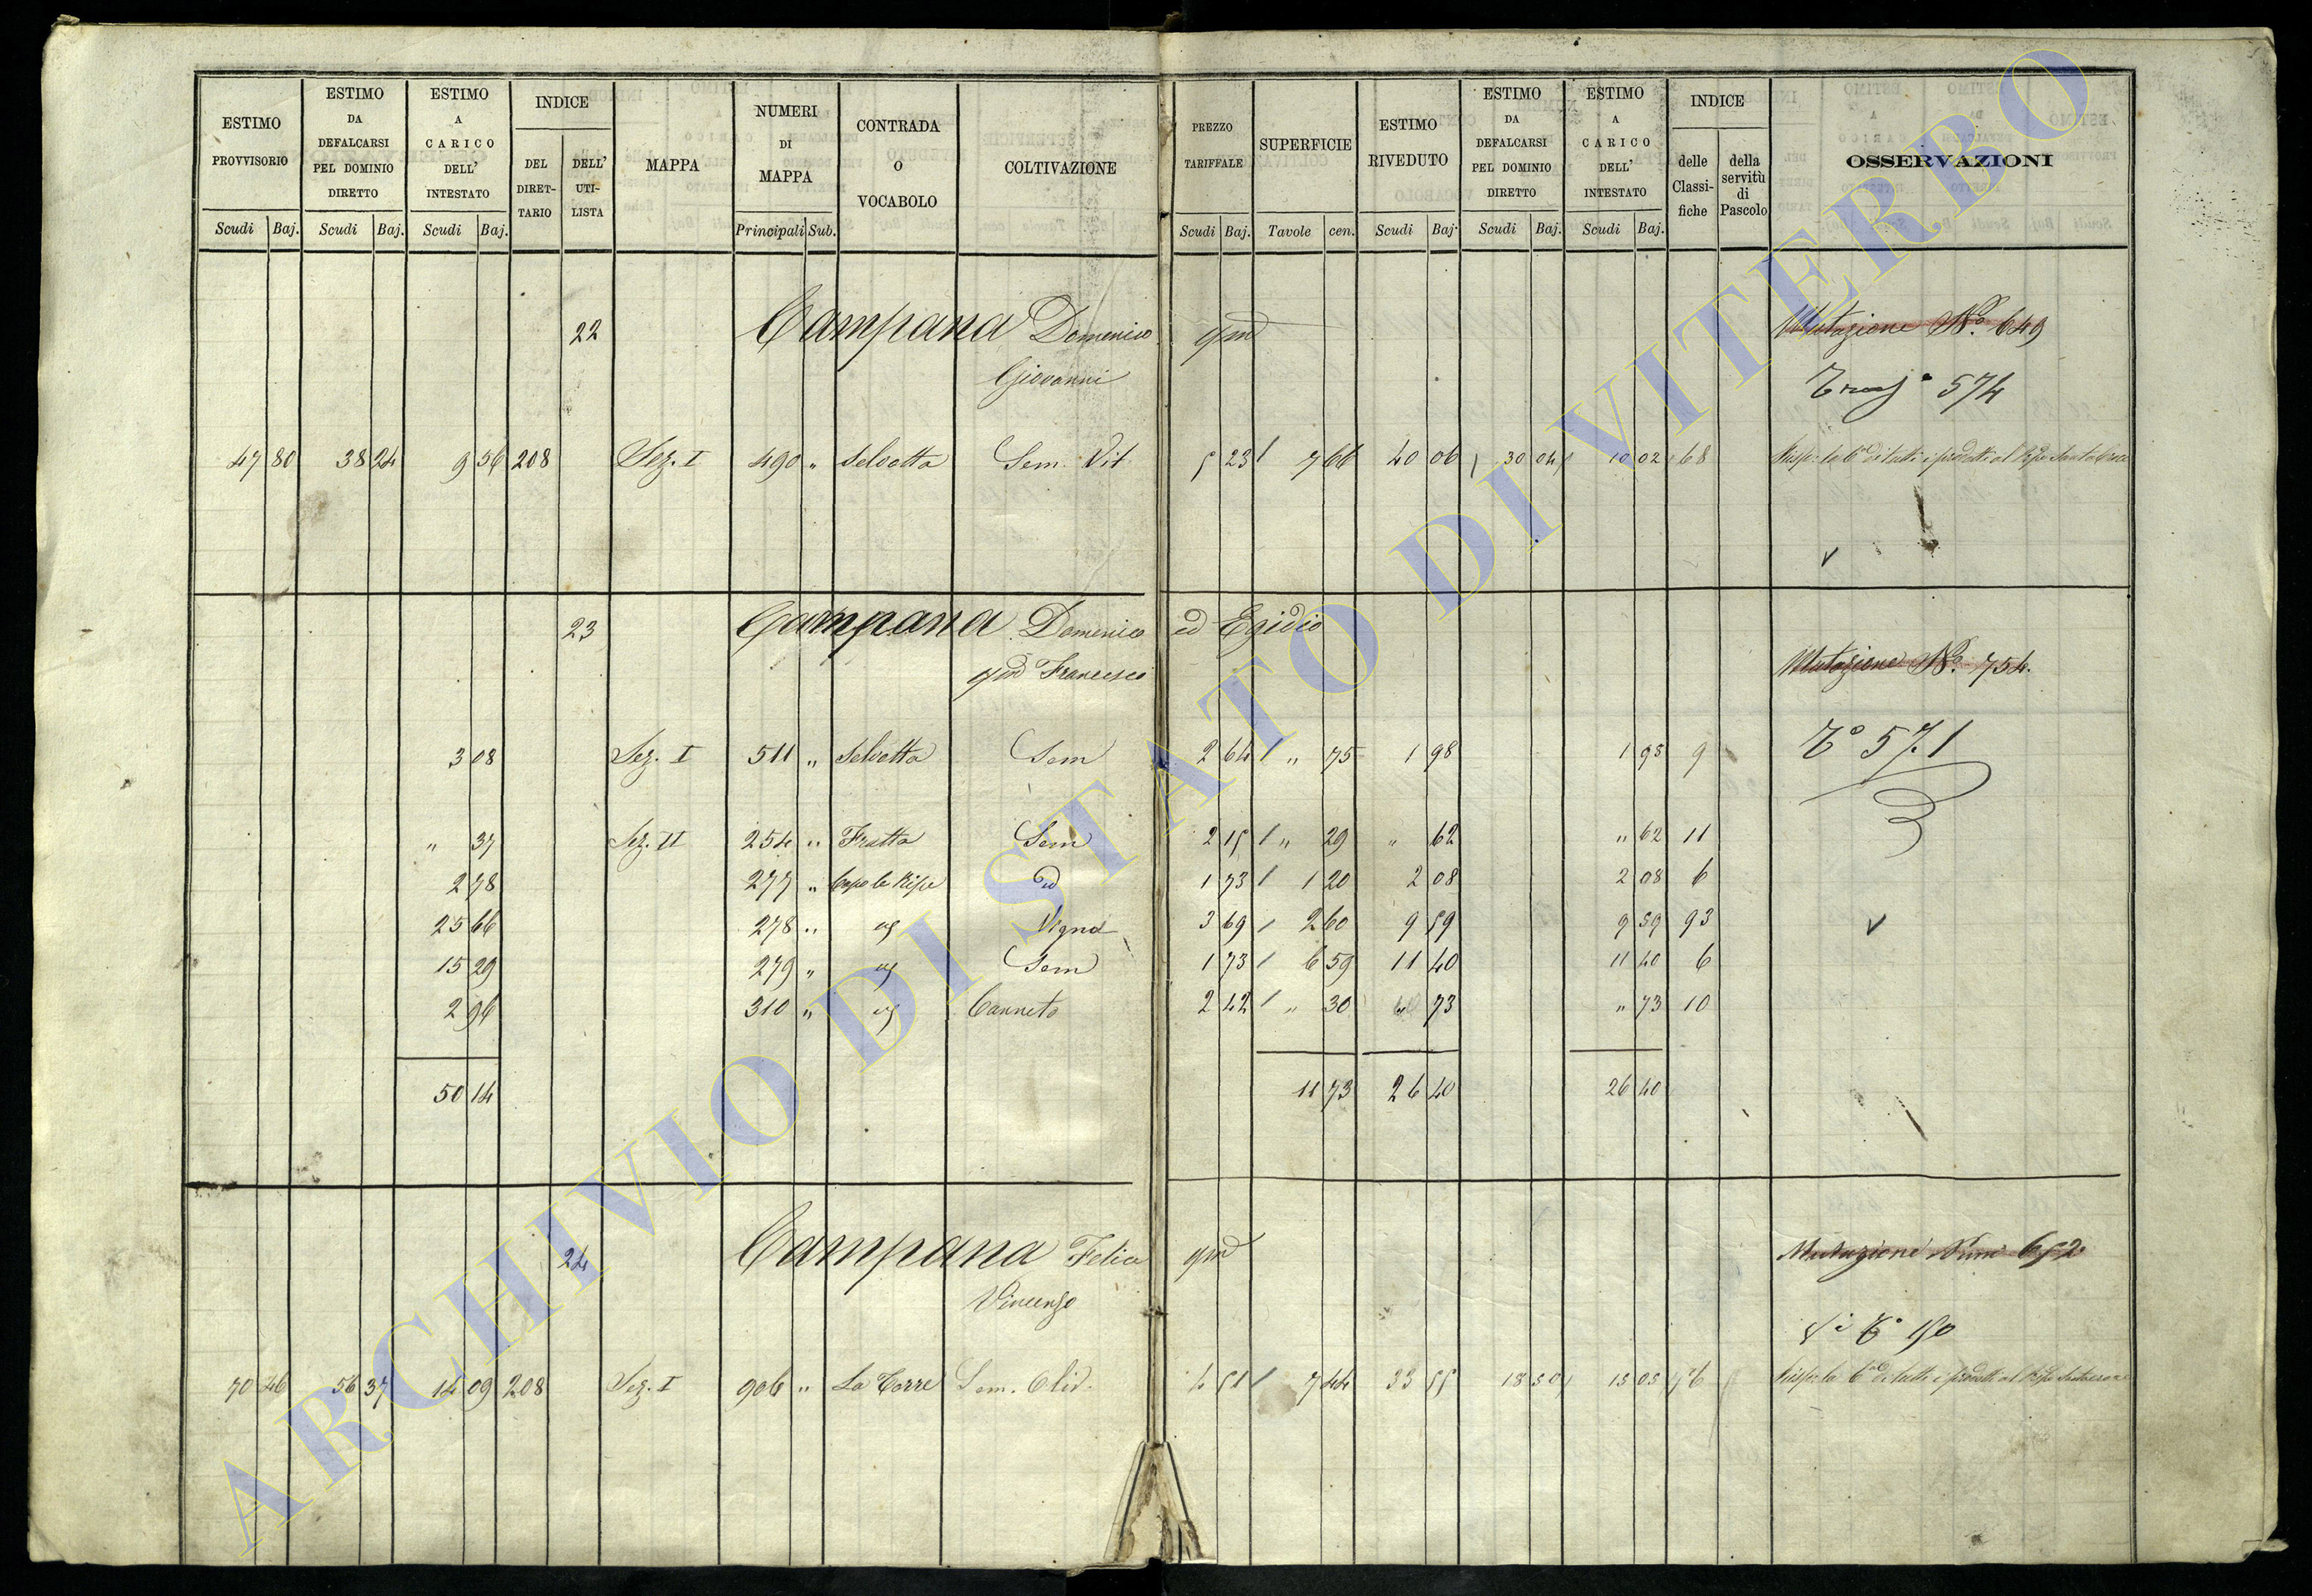 ESTIMO PROVVISORIO Scudi Baj. ESTIMO DA DEFALCARSI PEL DOMINIO DIRETTO Scudi Baj. ESTIMO A CARICO DELL' INTESTATO Scudi Baj. INDICE DEL DIRETTARIO DELL' UTILISTA MAPPA NUMERI DI MAPPA Principali Sub. CONTRADA O VOCABOLO COLTIVAZIONE PREZZO TARIFFALE Scudi Baj. SUPERFICIE Tavole cen. ESTIMO RIVEDUTO Scudi Baj. ESTIMO DA DEFALCARSI PEL DOMINIO DIRETTO Scudi Baj. ESTIMO A CARICO DELL' INTESTATO Scudi Baj. INDICE delle Classifiche della servitù di Pascolo OSSERVAZIONI
22 Campana Domenico qm Mutazione No. 649
Giovanni 574
47 80 38 24 9 56 208 Sez. I 490 " Selvotta Sem. Vit 5 23 7 66 40 06 30 04 10 02 68
23 Campana Domenico ed Egidio
qm Francesco Mutazione No. 754.
3 08 Sez. I 511 " Selvotta Sem 2 64 " 75 1 98 1 98 9 To 571
" 37 Sez. II 254 " Fratta Sem 2 15 " 29 " 62 " 62 11
2 78 277 " Capo le Ripe id 1 73 1 20 2 08 2 08 6
25 66 278 " id Vigna 3 69 2 60 9 59 9 59 93
15 29 279 " id Sem 1 73 6 59 11 40 11 40 6
2 96 310 " id Canneto 2 42 " 30 " 73 " 73 10
50 14 11 73 26 40 26 40
24 Campana Felice qm Mutazione Num 652
Vincenzo
To 150
70 46 56 37 14 09 208 Sez. I 906 " La Torre Sem. Oliv. 4 51 7 44 33 55 18 50 15 05 76
ARCHIVIO DI STATO DI VITERBO